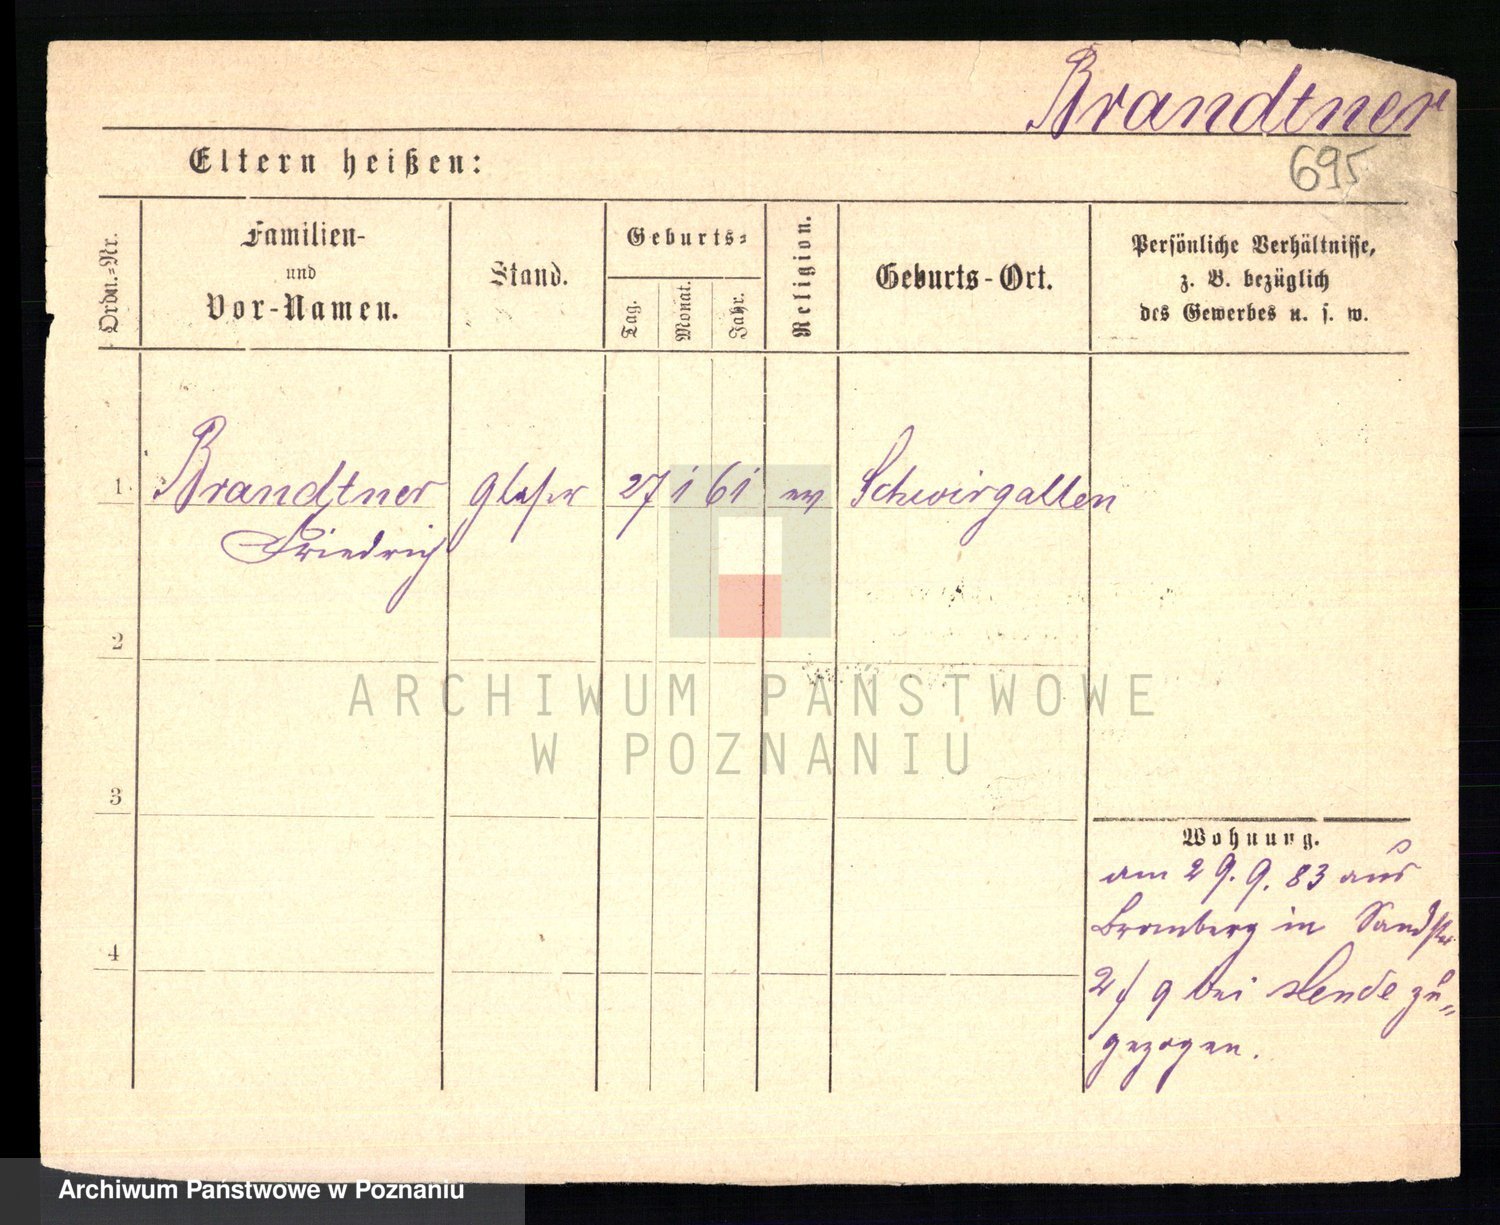 Brandtner
695
Eltern heißen:
Ordn.=Nr.
Familien-
und
Vor-Namen.
Stand.
Geburts=
Tag.
Monat.
Jahr.
Religion.
Geburts-Ort.
Persönliche Verhältnisse,
z. B. bezüglich
des Gewerbes u. s. w.
1. Brandtner Glaser 27 1 61 ev Schwirgallen
Friedrich
2
3
4
Wohnung.
am 29. 9. 83 aus
Bromberg in Sandstr.
2/9 bei zu=
gezogen.
ARCHIWUM PAŃSTWOWE
W POZNANIU
Archiwum Państwowe w Poznaniu